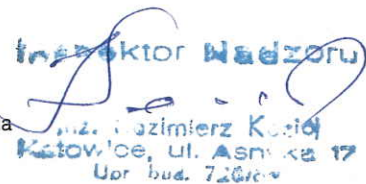 Inspektor Nadzoru
a
inż. Kazimierz Kozioł
Katowice, ul. Asnyka 17
Upr bud.